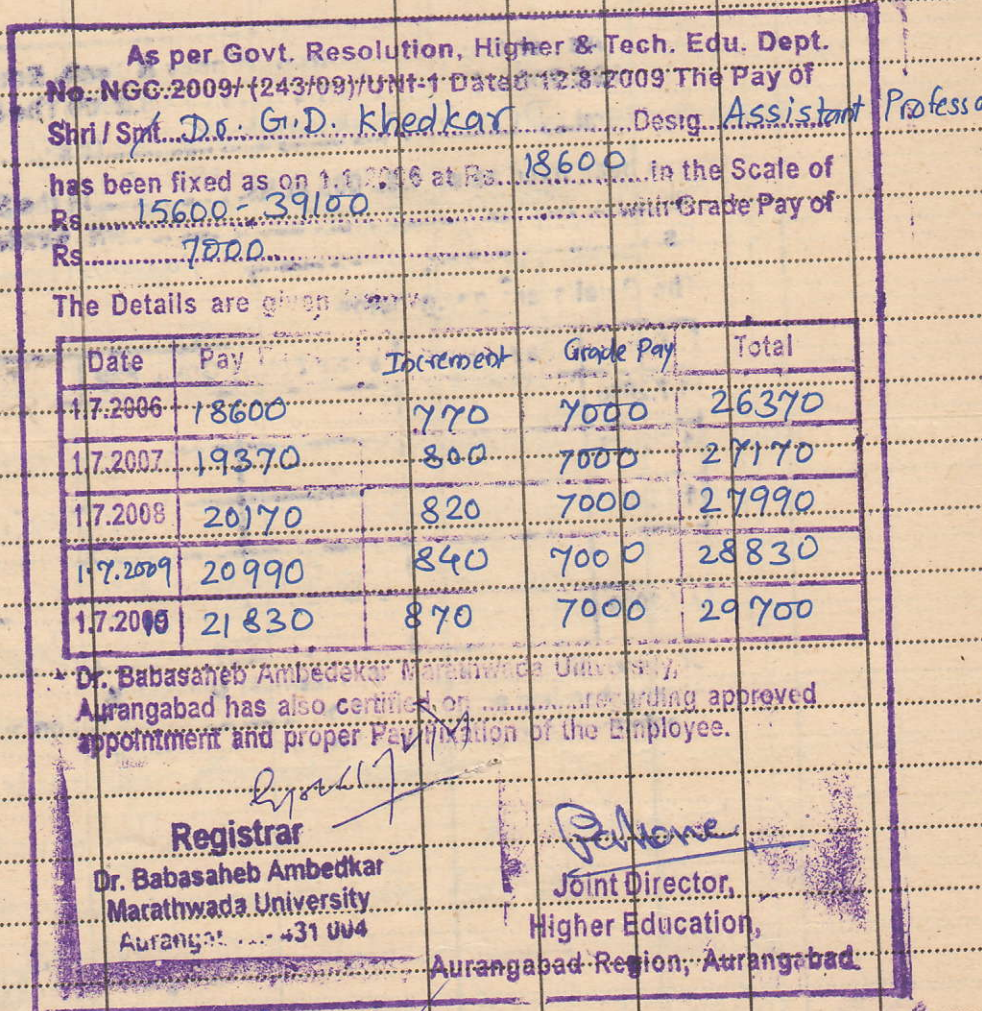 As per Govt. Resolution, Higher & Tech. Edu. Dept.
No. NGC.2009/ (243/09)/UNI-1 Dated 12.8.2009 The Pay of
Shri / Smt. Dr. G.D. Khedkar Desig. Assistant Professo
has been fixed as on 1.1.2006 at Rs. 18600 in the Scale of
Rs. 15600 - 39100 with Grade Pay of
Rs. 7000
The Details are given
Date Pay Increment Grade Pay Total
1.7.2006 18600 770 7000 26370
1.7.2007 19370 800 7000 27170
1.7.2008 20170 820 7000 27990
1.7.2009 20990 840 7000 28830
1.7.2010 21830 870 7000 29700
Dr. Babasaheb Ambedekar Marathwada University,
Aurangabad has also certified on ............ regarding approved
appointment and proper Pay Fixation of the Employee.
Registrar
Dr. Babasaheb Ambedkar
Marathwada University
431 004
Joint Director,
Higher Education,
Aurangabad Region, Aurangabad.